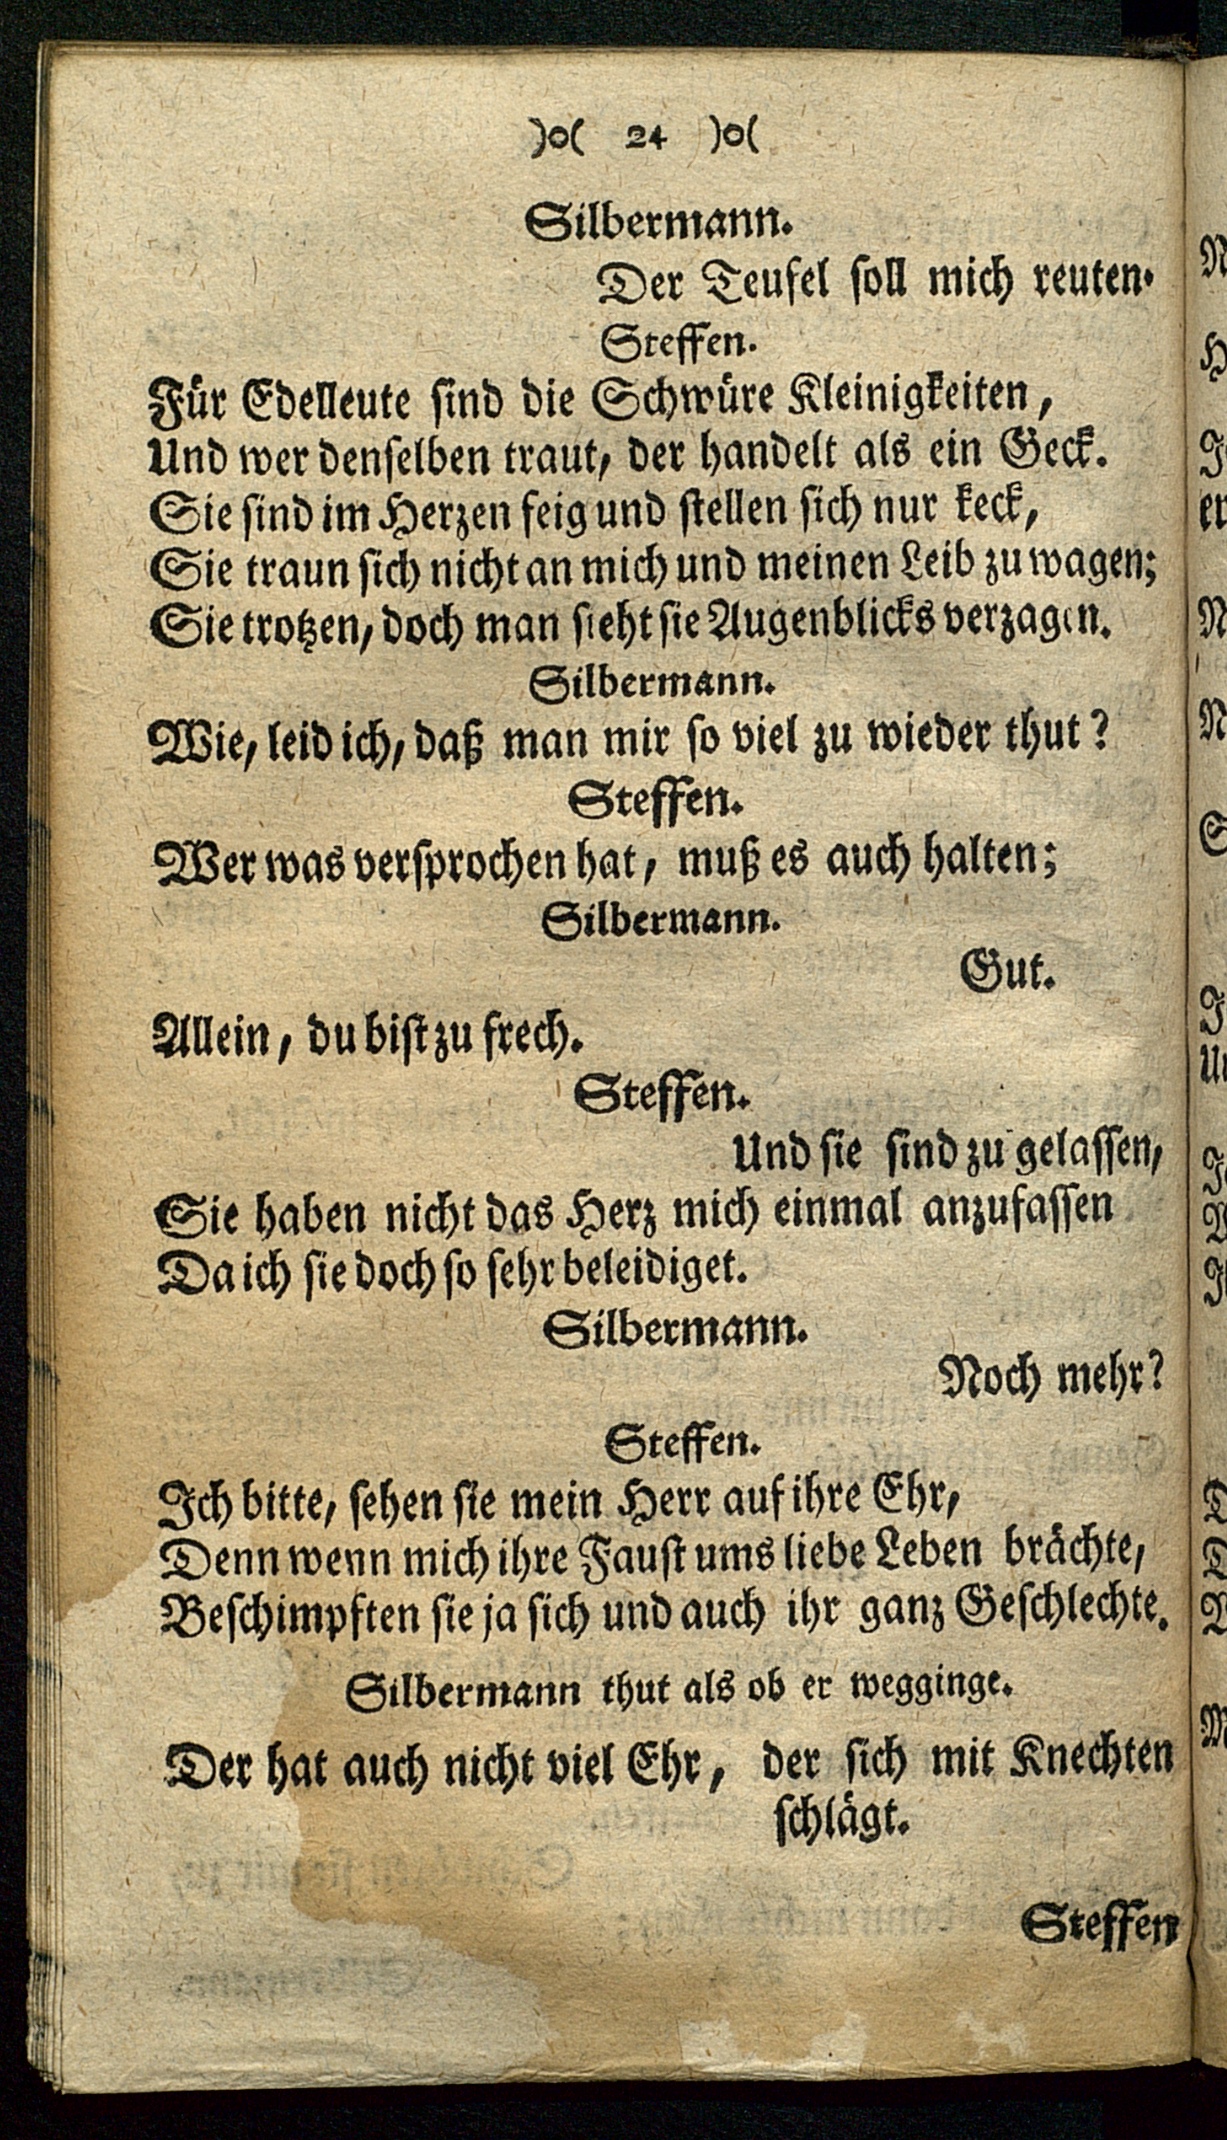 )o( 24 )o(
Silbermann.
Der Teufel soll mich reuten.
Steffen.
Für Edelleute sind die Schwüre Kleinigkeiten,
Und wer denselben traut, der handelt als ein Geck.
Sie sind im Herzen feig und stellen sich nur keck,
Sie traun sich nicht an mich und meinen Leib zu wagen;
Sie trotzen, doch man sieht sie Augenblicks verzagen.
Silbermann.
Wie, leid ich, daß man mir so viel zu wieder thut?
Steffen.
Wer was versprochen hat, muß es auch halten;
Silbermann.
Gut.
Allein, du bist zu frech.
Steffen.
Und sie sind zu gelassen,
Sie haben nicht das Herz mich einmal anzufassen
Da ich sie doch so sehr beleidiget.
Silbermann.
Noch mehr?
Steffen.
Ich bitte, sehen sie mein Herr auf ihre Ehr,
Denn wenn mich ihre Faust ums liebe Leben brächte,
Beschimpften sie ja sich und auch ihr ganz Geschlechte.
Silbermann thut als ob er wegginge.
Der hat auch nicht viel Ehr, der sich mit Knechten
schlägt.
Steffen